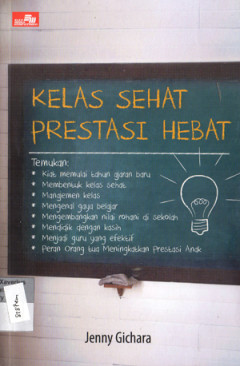 KELAS SEHAT
PRESTASI HEBAT
Temukan:
* Kiat memulai tahun ajaran baru
* Membentuk kelas sehat
* Manajemen kelas
* Mengenal gaya belajar
* Mengembangkan nilai rohani di sekolah
* Mendidik dengan kasih
* Menjadi guru yang efektif
* Peran Orang tua Meningkatkan Prestasi Anak
Jenny Gichara